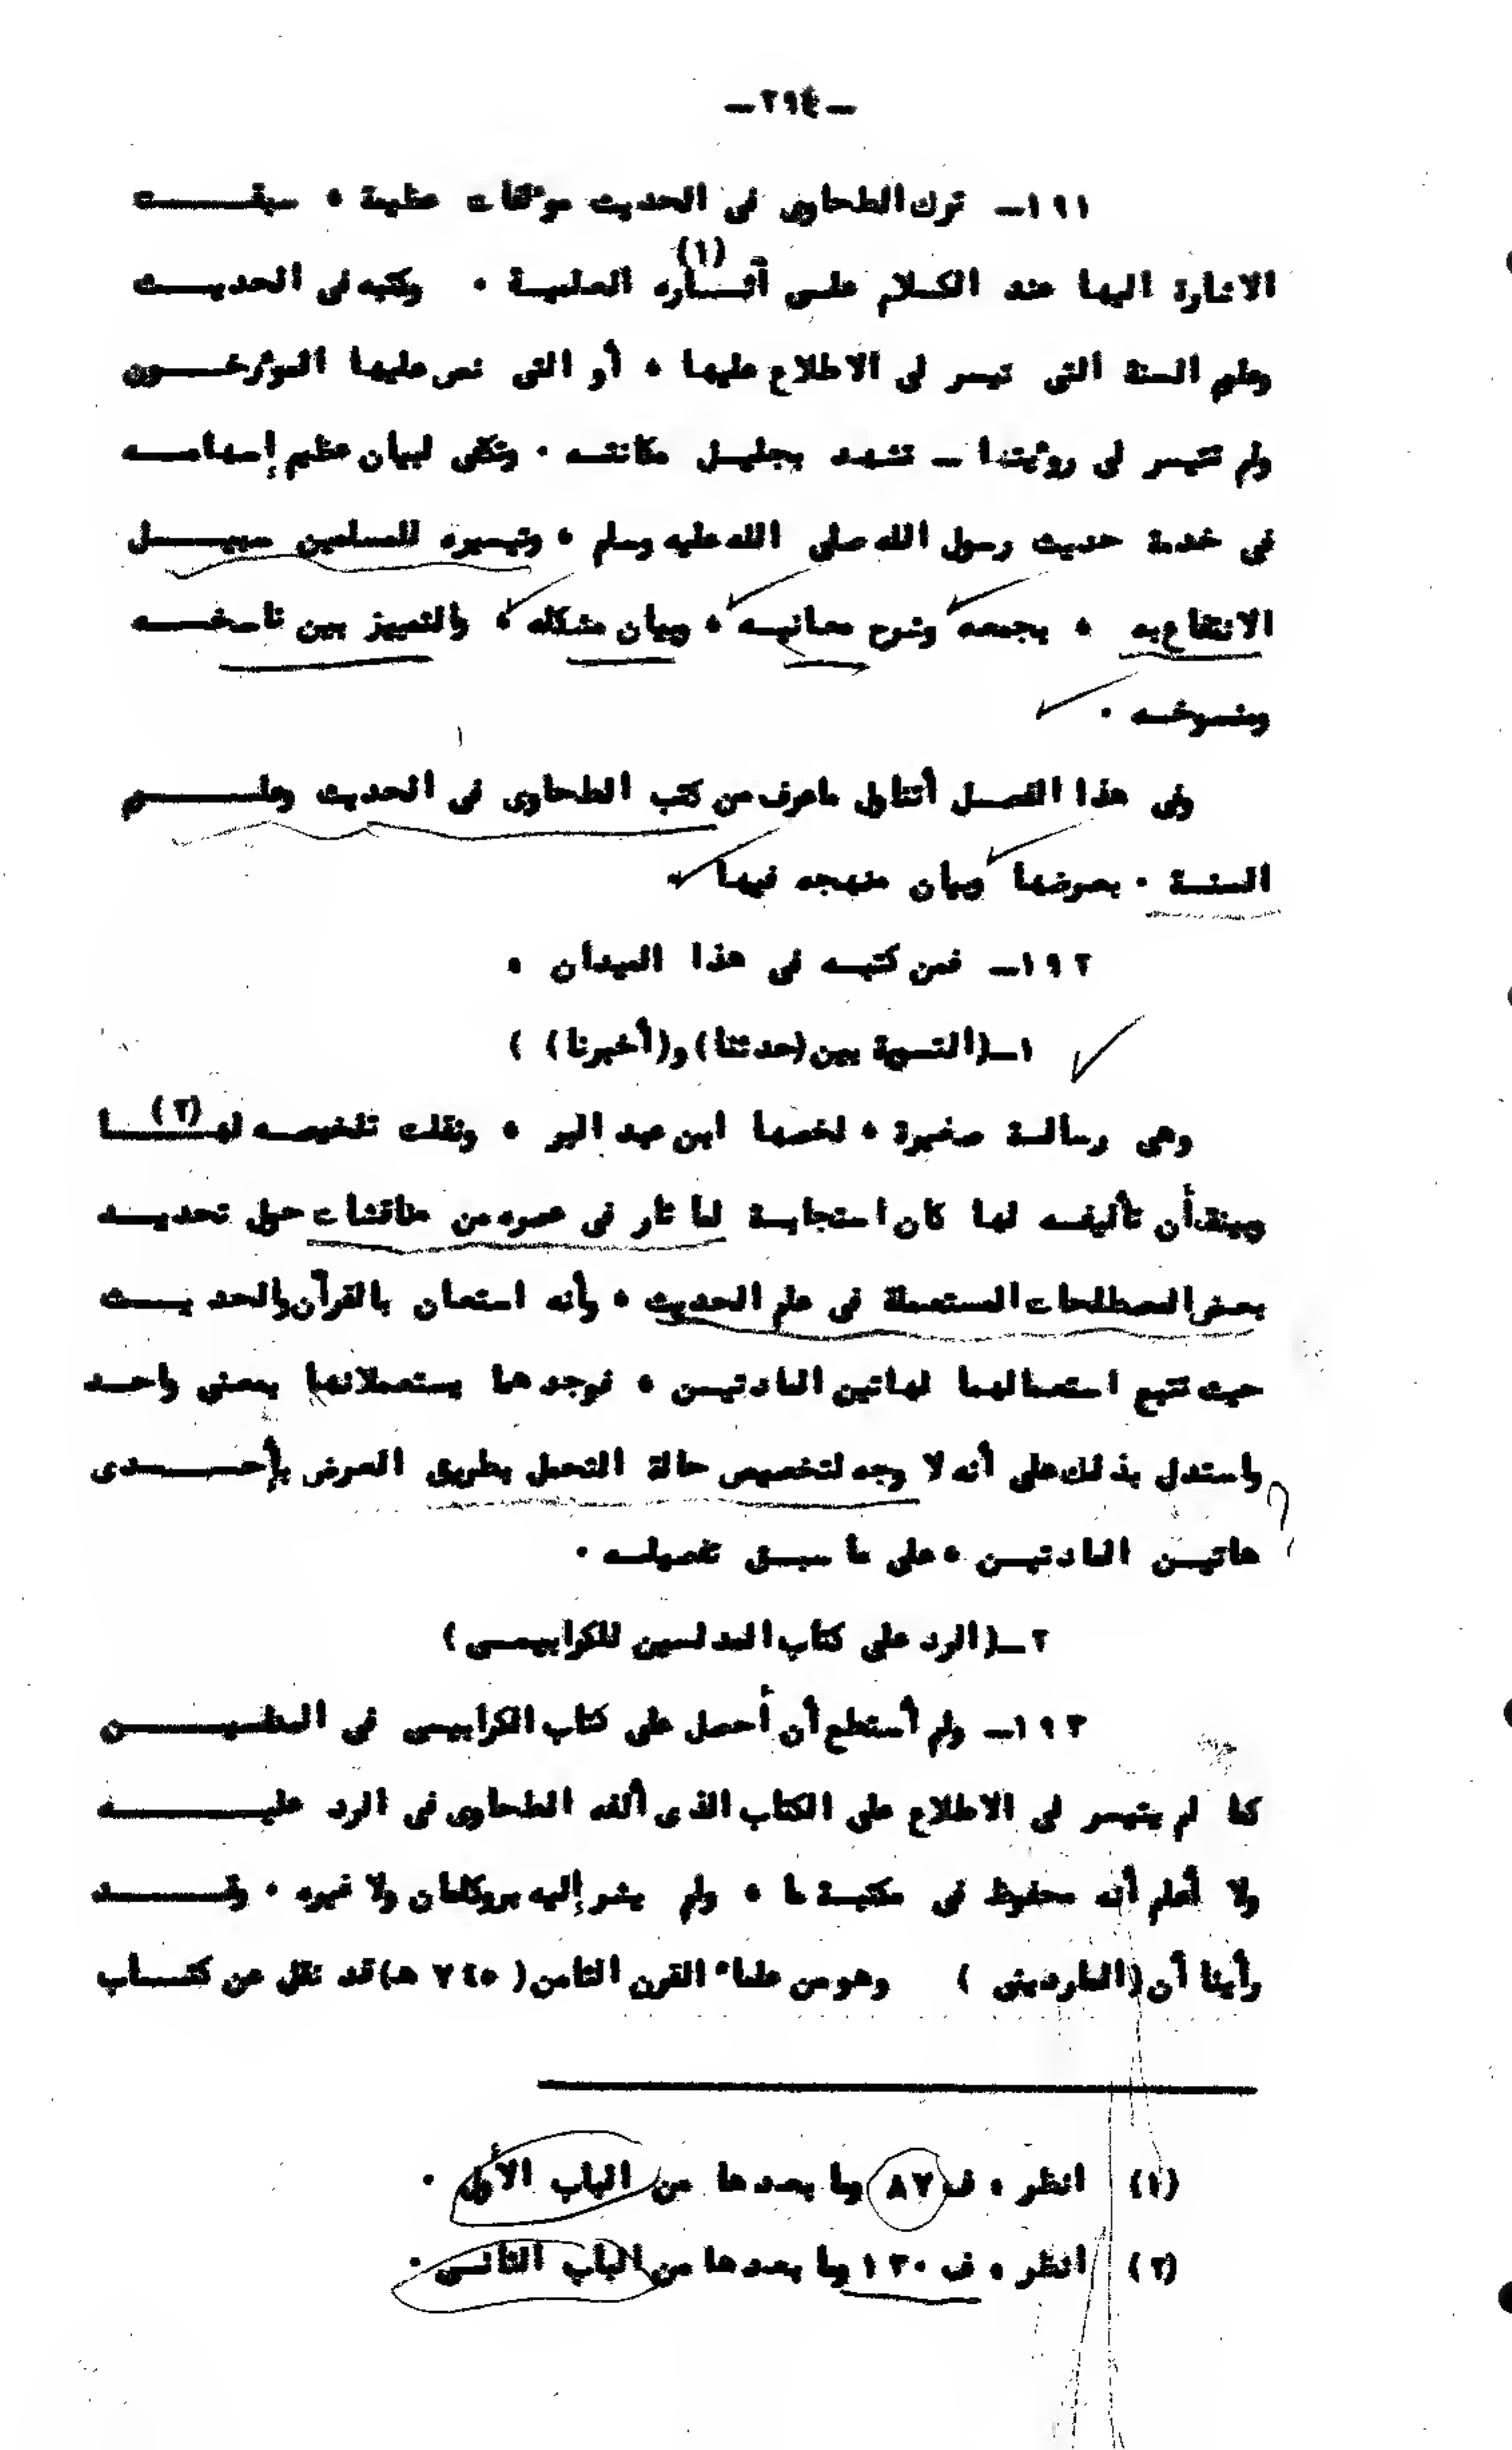 -٢٩٤-
١٩١- ترك الطحاوى فى الحديث مؤلفات عظيمة ، سبقت
الاشارة اليها عند الكلام على آثاره العلمية (١) . وكتبه فى الحديث
وعلوم السنة التى تيسر لى الاطلاع عليها ، أو التى نص عليها المؤرخون
ولم تتيسر لى رؤيتها - تشهد بجليل مكانته . وتكفى لبيان عظيم إسهامه
فى خدمة حديث رسول الله صلى الله عليه وسلم ، وتيسيره للمسلمين سبيل
الانتفاع به ، بجمعه وشرح معانيه ، وبيان مشكله ، والتمييز بين ناسخه
ومنسوخه .
وفى هذا الفصل أتناول ما عرف من كتب الطحاوى فى الحديث وعلم
السنة . بعرضها وبيان منهجه فيها
١٩٢- فمن كتبه فى هذا الميدان .
١-(التسوية بين (حدثنا) و(أخبرنا) )
وهى رسالة صغيرة ، لخصها ابن عبد البر ، ونقلت تلخيصه لها (٢)
وبينت أن تأليفه لها كان استجابة لما ثار فى عصره من مناقشات حول تحديد
بعض المصطلحات المستعملة فى علم الحديث ، وأنه استعان بالقرآن والحديث
حيث تتبع استعمالهما لهاتين المادتين ، فوجدهما يستعملانها بمعنى واحد
واستدل بذلك على أنه لا وجه لتخصيص حالة التحمل بطريق العرض بإحدى
هاتين المادتين ، على ما سبق تفصيله .
٢-(الرد على كتاب المدلسين للكرابيسى)
١٩٣- ولم أستطع أن أحصل على كتاب الكرابيسى فى المدلسين
كما لم يتيسر لى الاطلاع على الكتاب الذى ألفه الطحاوى فى الرد عليه
ولا أعلم أنه محفوظ فى مكتبة ما ، ولم يشر إليه بروكلمان ولا غيره . وقد
رأينا أن (الماردينى ) وهو من علماء القرن الثامن( ٧٤٥ هـ) قد نقل عن كتاب
(١) انظر ، ف ٨٧ وما بعدها من الباب الأول .
(٢) انظر ، ف ١٣٠ وما بعدها من الباب الثانى .